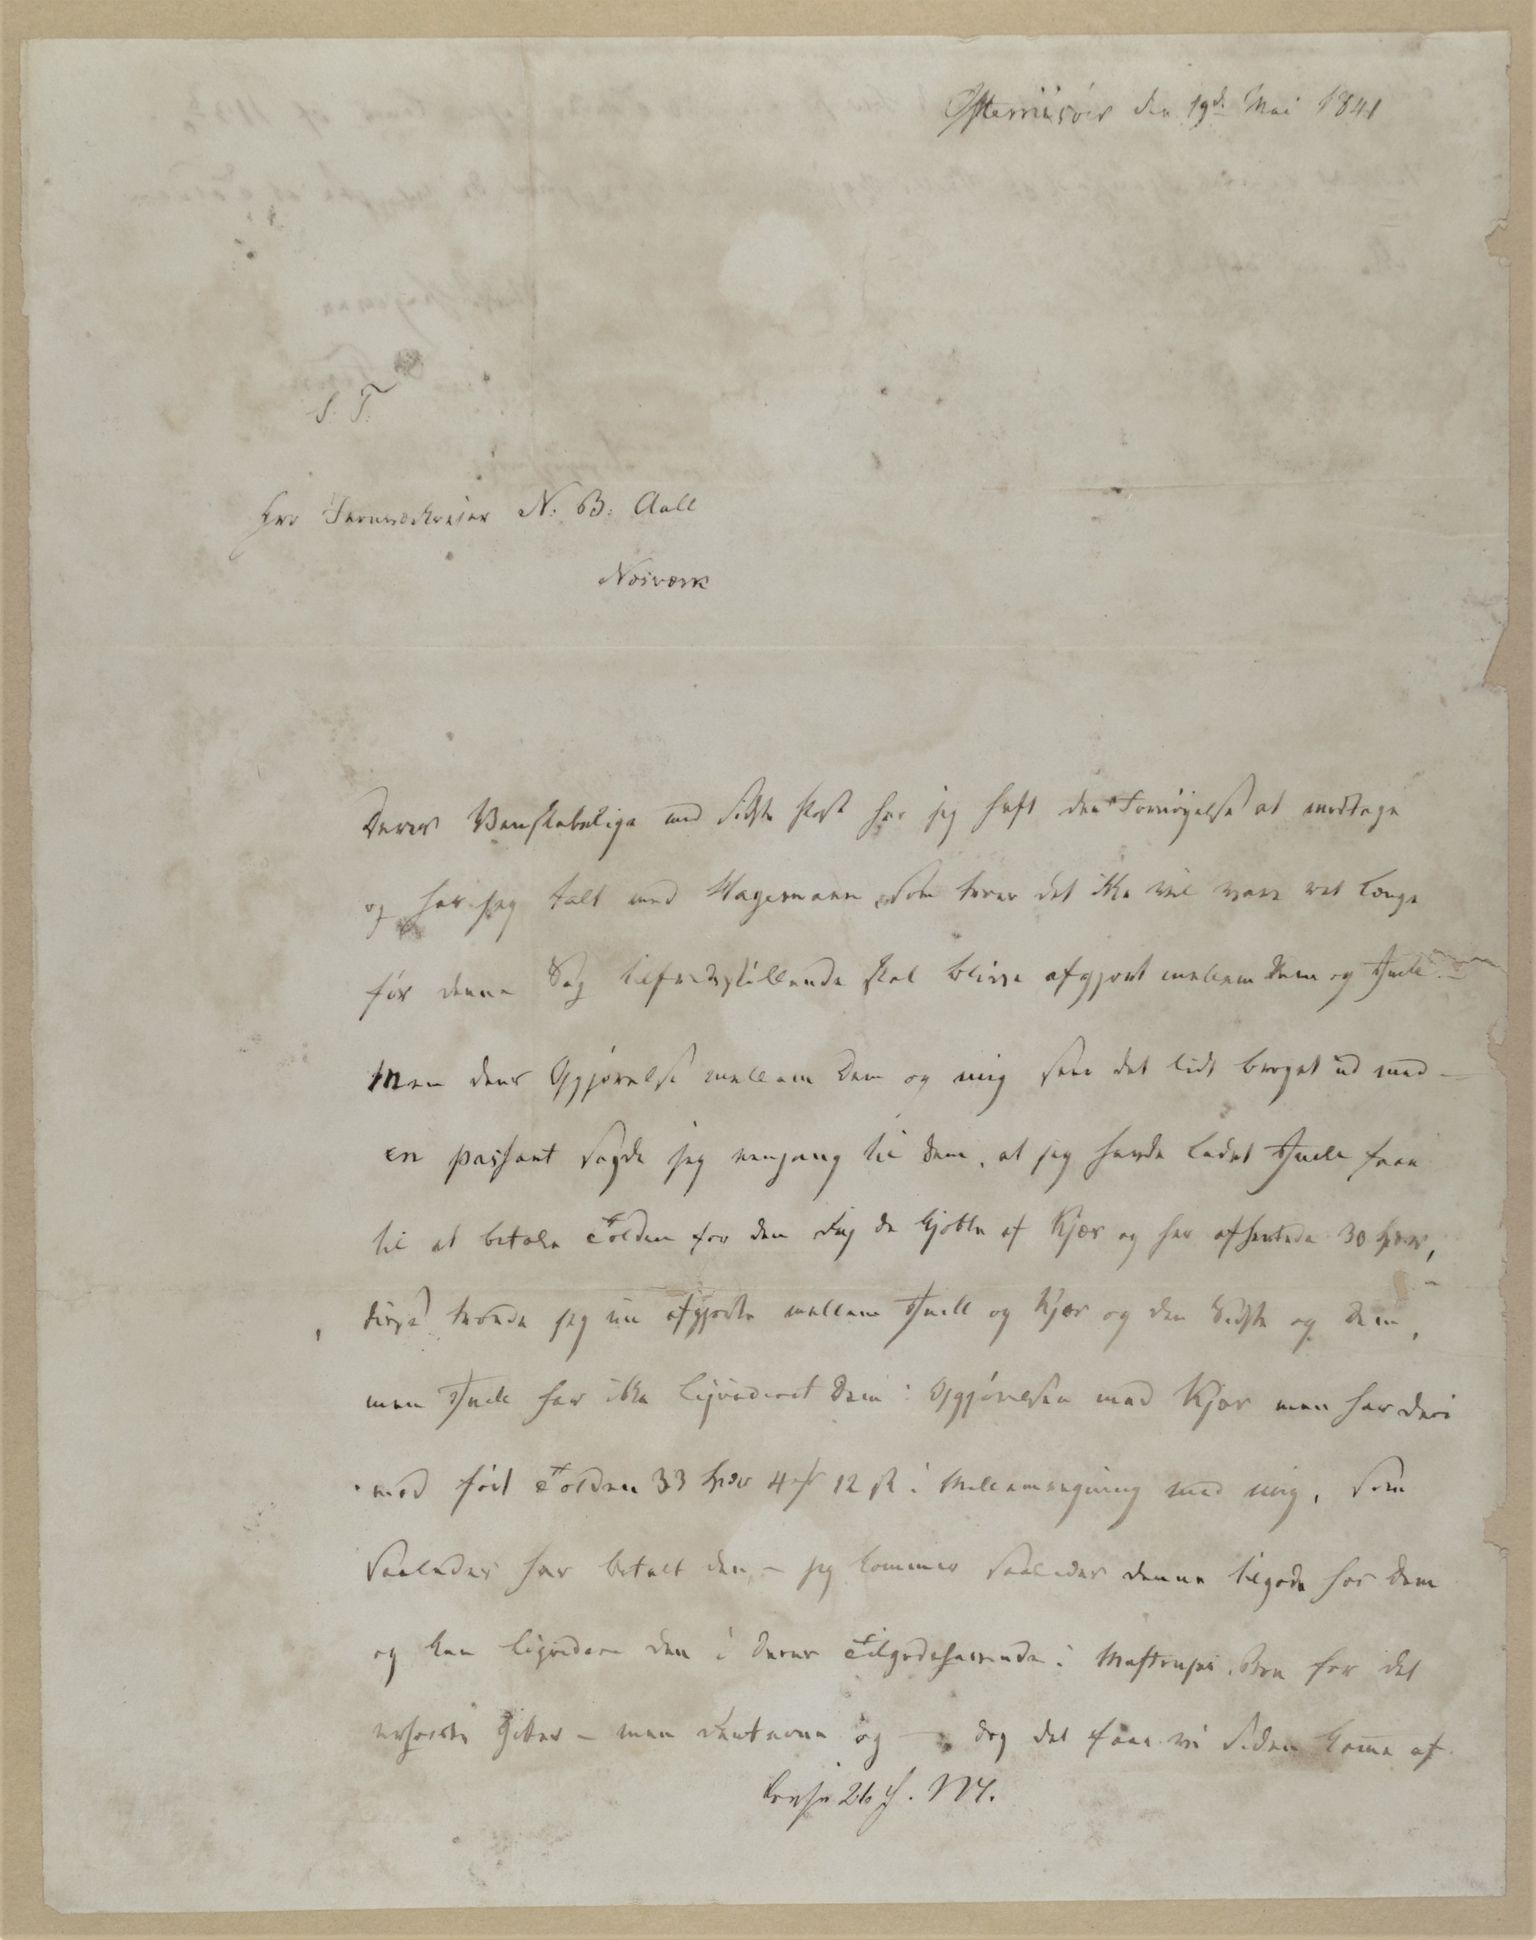 Østerriisøer den 19de Mai 1841
S. T.
Herr Jernværkseier N. B. Aall
Næsværk
Deres Venskabelige med sidste Post har jeg haft den Fornøyelse at modtage
og har jeg talt med Hagemann, som troer det ikke vil vare ret længe
før denne Sag tilfredsstillende skal blive afgjort mellem Dem og Juell
Men vores Opgjørelse mellem Dem og mig seer det lidt broget ud med –
en passant sagde jeg engang til Dem, at jeg havde ladet Juell faae
til at betale Tolden for den De kjøbte af Kjær og her afhentede 30
troede jeg nu afgjorte mellem Juell og Kjær og den Sidste og Dem,
men Juell har ikke liqvideret Dem i Opgjørelsen med Kjær men har deri
mod ført Tolden 33 Spdr 4 12 s i Mellemregning med mig, som
saaledes har betalt den, – jeg kommer saaledes denne tilgode hos Dem
og kan liqvidere den i Deres Tilgodehavende i
– men og – dog det faae vi siden komme af